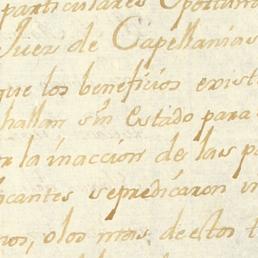 particulares Oportuna
Juez de Capellanias
que los beneficios exist
hallan sin Estado para
or la inaccion de las p
icantes sepredicaron in
nos, olos mas de estos t